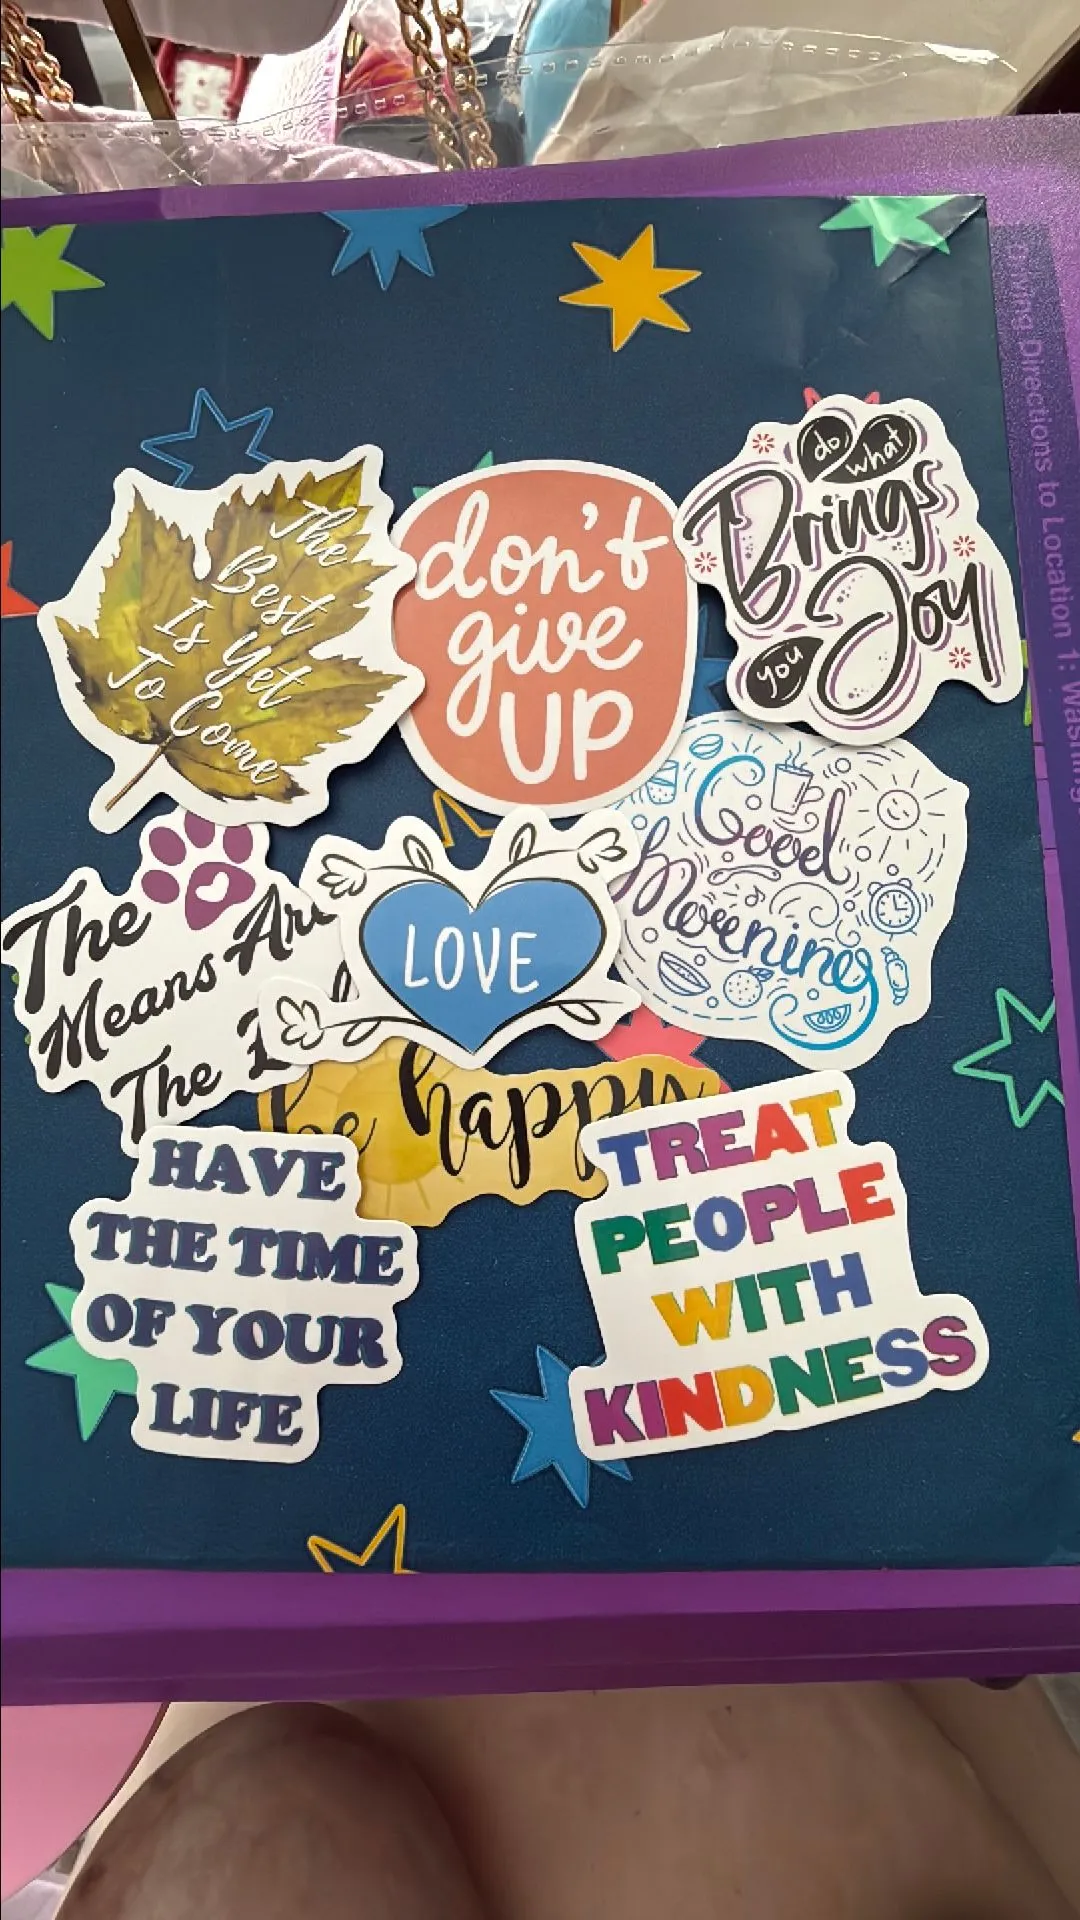 The
Best
Is Yet
To Come
don't
give
UP
do what
Brings
you Joy
Good
Morning
The
Means Are
The
LOVE
be happy
HAVE
THE TIME
OF YOUR
LIFE
TREAT
PEOPLE
WITH
KINDNESS
Driving Directions to Location 1: Washing